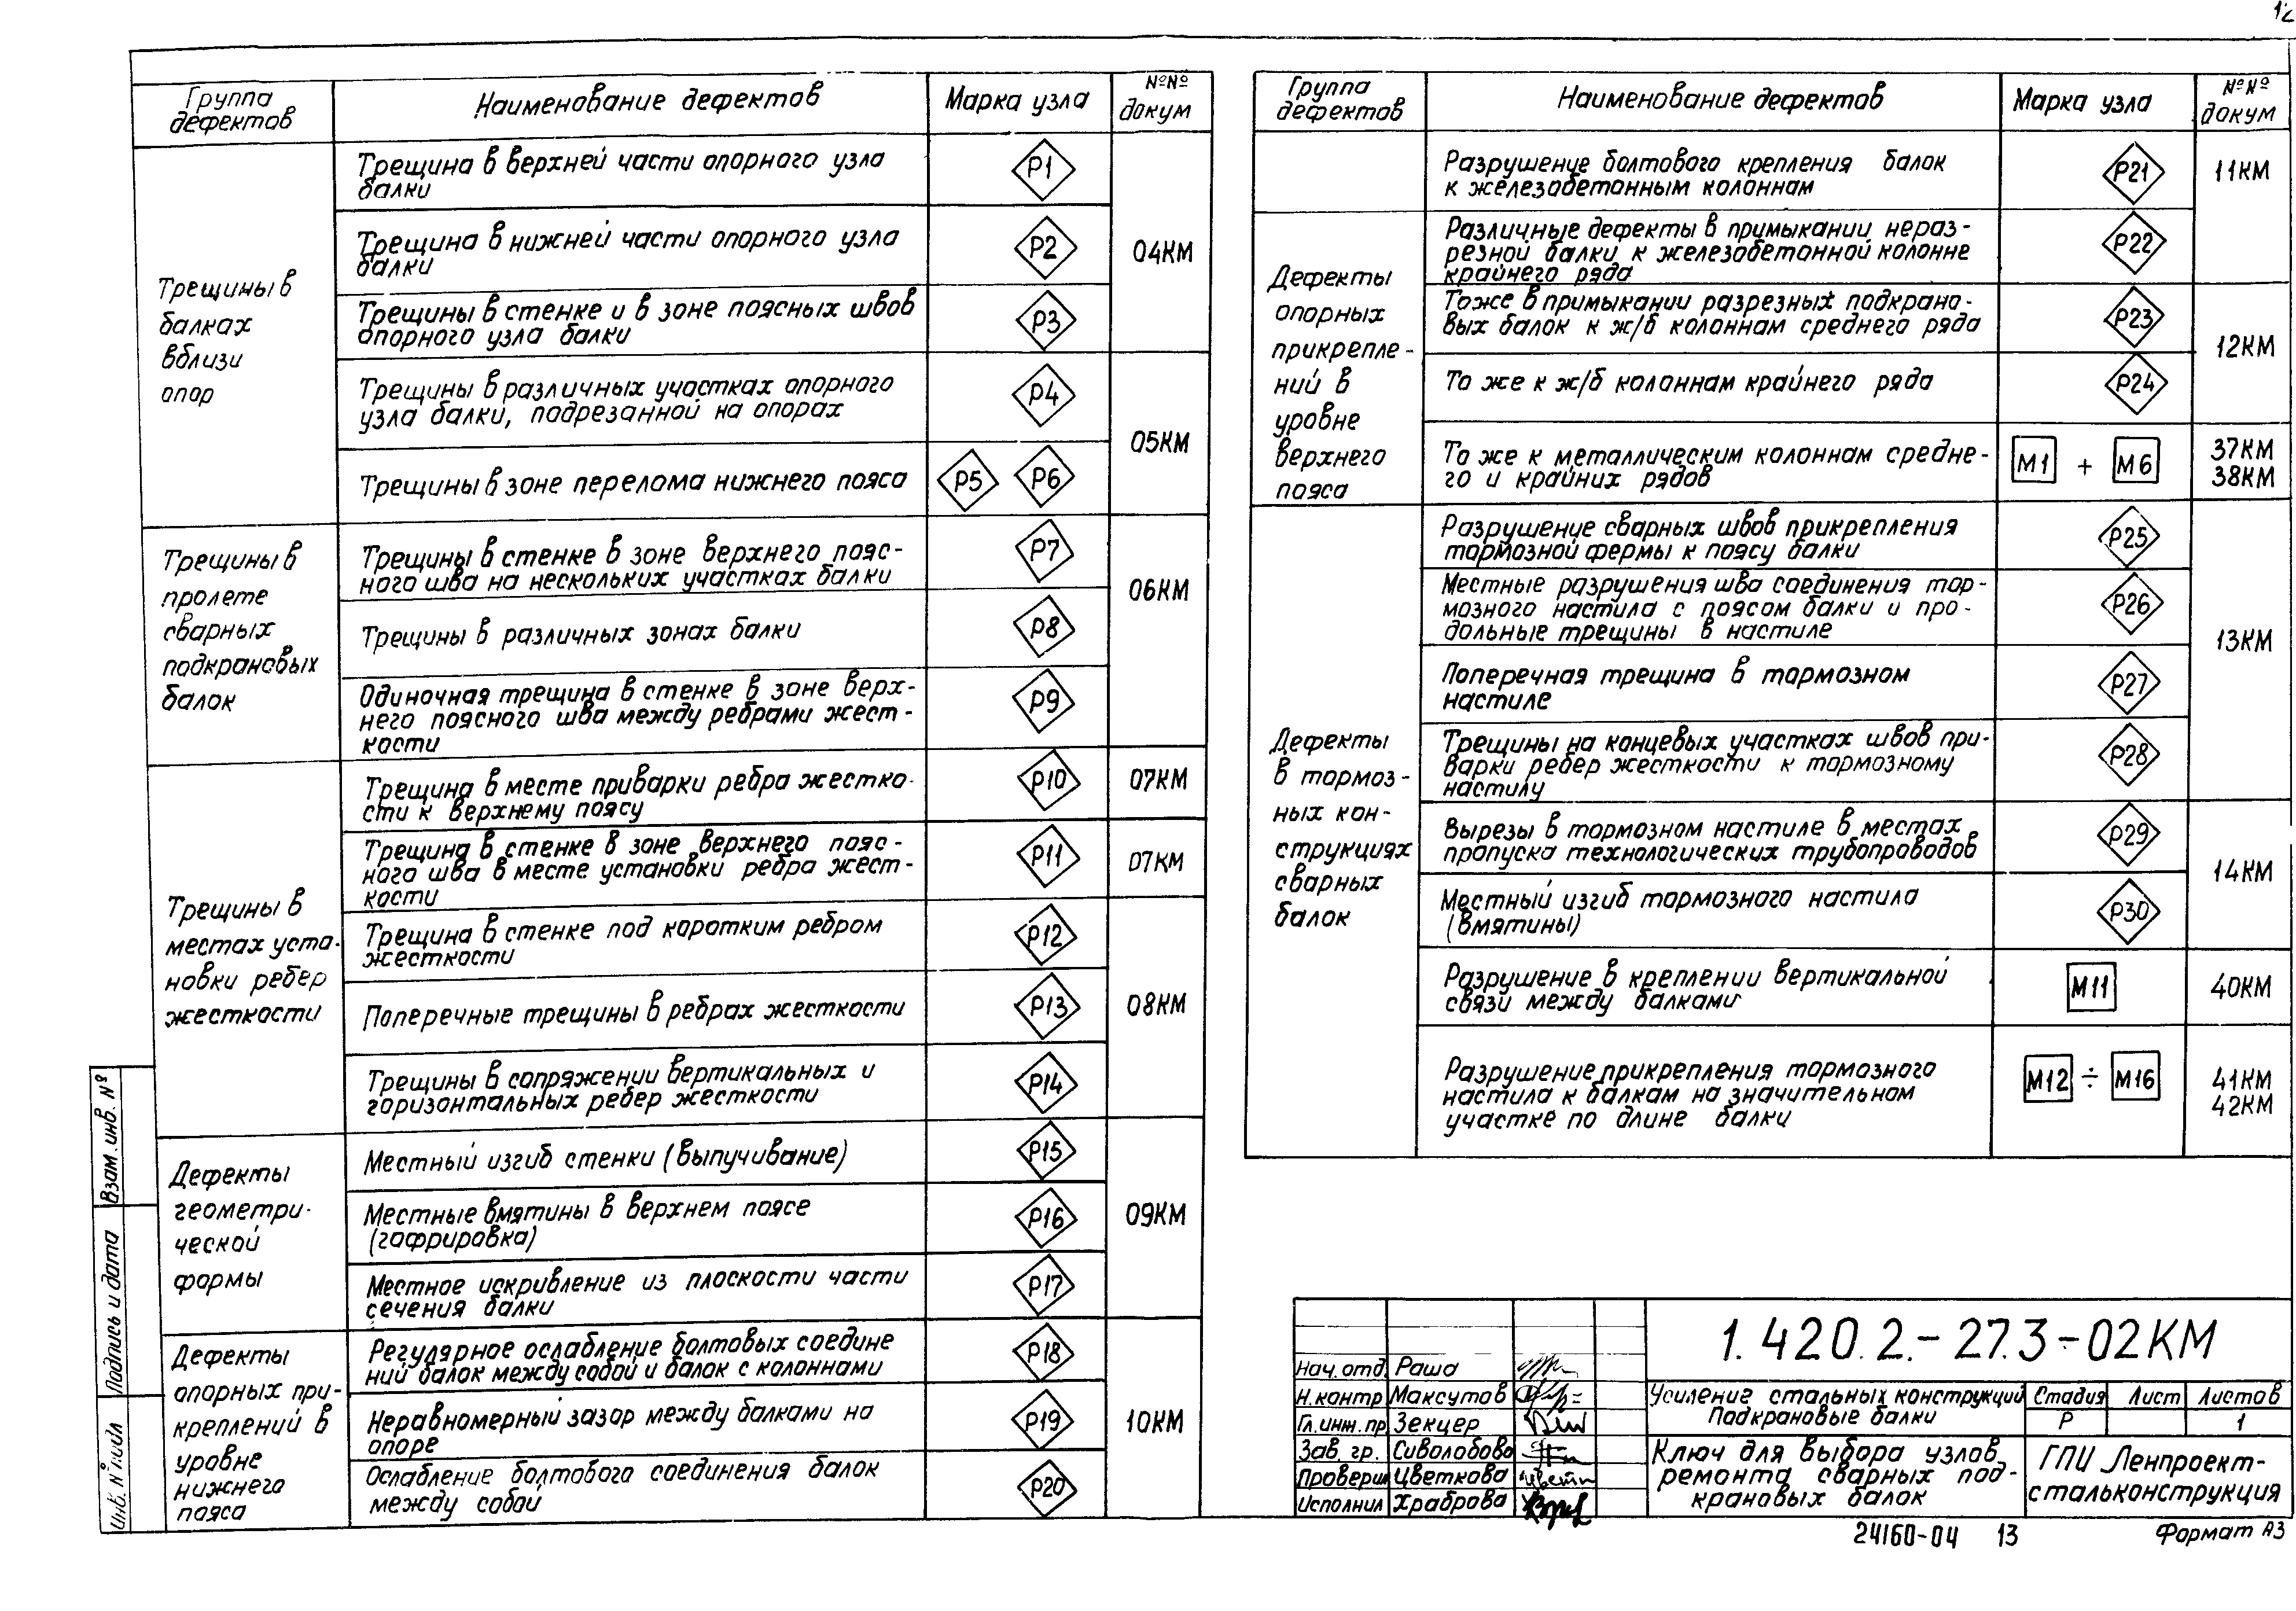 12
Группа
дефектов
Наименование дефектов
Марка узла
№№
докум
Трещины в
балках
вблизи
опор
Трещина в верхней части опорного узла
балки
Р1
Трещина в нижней части опорного узла
балки
Р2
04КМ
Трещины в стенке и в зоне поясных швов
опорного узла балки
Р3
Трещины в различных участках опорного
узла балки, подрезанной на опорах
Р4
05КМ
Трещины в зоне перелома нижнего пояса
Р5 Р6
Трещины в
пролете
сварных
подкрановых
балок
Трещины в стенке в зоне верхнего пояс-
ного шва на нескольких участках балки
Р7
06КМ
Трещины в различных зонах балки
Р8
Одиночная трещина в стенке в зоне верх-
него поясного шва между ребрами жест-
кости
Р9
Трещины в
местах уста-
новки ребер
жесткости
Трещина в месте приварки ребра жестко-
сти к верхнему поясу
Р10
07КМ
Трещина в стенке в зоне верхнего пояс-
ного шва в месте установки ребра жест-
кости
Р11
07КМ
Трещина в стенке под коротким ребром
жесткости
Р12
Поперечные трещины в ребрах жесткости
Р13
08КМ
Трещины в сопряжении вертикальных и
горизонтальных ребер жесткости
Р14
Дефекты
геометри-
ческой
формы
Местный изгиб стенки (выпучивание)
Р15
Местные вмятины в верхнем поясе
(гофрировка)
Р16
09КМ
Местное искривление из плоскости части
сечения балки
Р17
Дефекты
опорных при-
креплений в
уровне
нижнего
пояса
Регулярное ослабление болтовых соедине
ний балок между собой и балок с колоннами
Р18
Неравномерный зазор между балками на
опоре
Р19
10КМ
Ослабление болтового соединения балок
между собой
Р20
Группа
дефектов
Наименование дефектов
Марка узла
№№
докум
Разрушение болтового крепления балок
к железобетонным колоннам
Р21
11КМ
Дефекты
опорных
прикрепле-
ний в
уровне
верхнего
пояса
Различные дефекты в примыкании нераз-
резной балки к железобетонной колонне
крайнего ряда
Р22
Тоже в примыкании разрезных подкрано-
вых балок к ж/б колоннам среднего ряда
Р23
12КМ
То же к ж/б колоннам крайнего ряда
Р24
То же к металлическим колоннам средне-
го и крайних рядов
М1 + М6
37КМ
38КМ
Дефекты
в тормоз-
ных кон-
струкциях
сварных
балок
Разрушение сварных швов прикрепления
тормозной фермы к поясу балки
Р25
Местные разрушения шва соединения тор-
мозного настила с поясом балки и про-
дольные трещины в настиле
Р26
13КМ
Поперечная трещина в тормозном
настиле
Р27
Трещины на концевых участках швов при-
варки ребер жесткости к тормозному
настилу
Р28
Вырезы в тормозном настиле в местах
пропуска технологических трубопроводов
Р29
14КМ
Местный изгиб тормозного настила
(вмятины)
Р30
Разрушение в креплении вертикальной
связи между балками
М11
40КМ
Разрушение прикрепления тормозного
настила к балкам на значительном
участке по длине балки
М12 ÷ М16
41КМ
42КМ
Взам. инв. №
Подпись и дата
Инв. № подл
Нач. отд. Раша
Н. контр Максутов
Гл. инж. пр. Зекцер
Зав. гр. Сиволобово
Проверил Цветкова
Исполнил Храброва
1.420.2.-27.3-02КМ
Усиление стальных конструкций
Подкрановые балки
Стадия Лист Листов
Р 1
Ключ для выбора узлов
ремонта сварных под-
крановых балок
ГПИ Ленпроект-
стальконструкция
24160-04 13
Формат А3